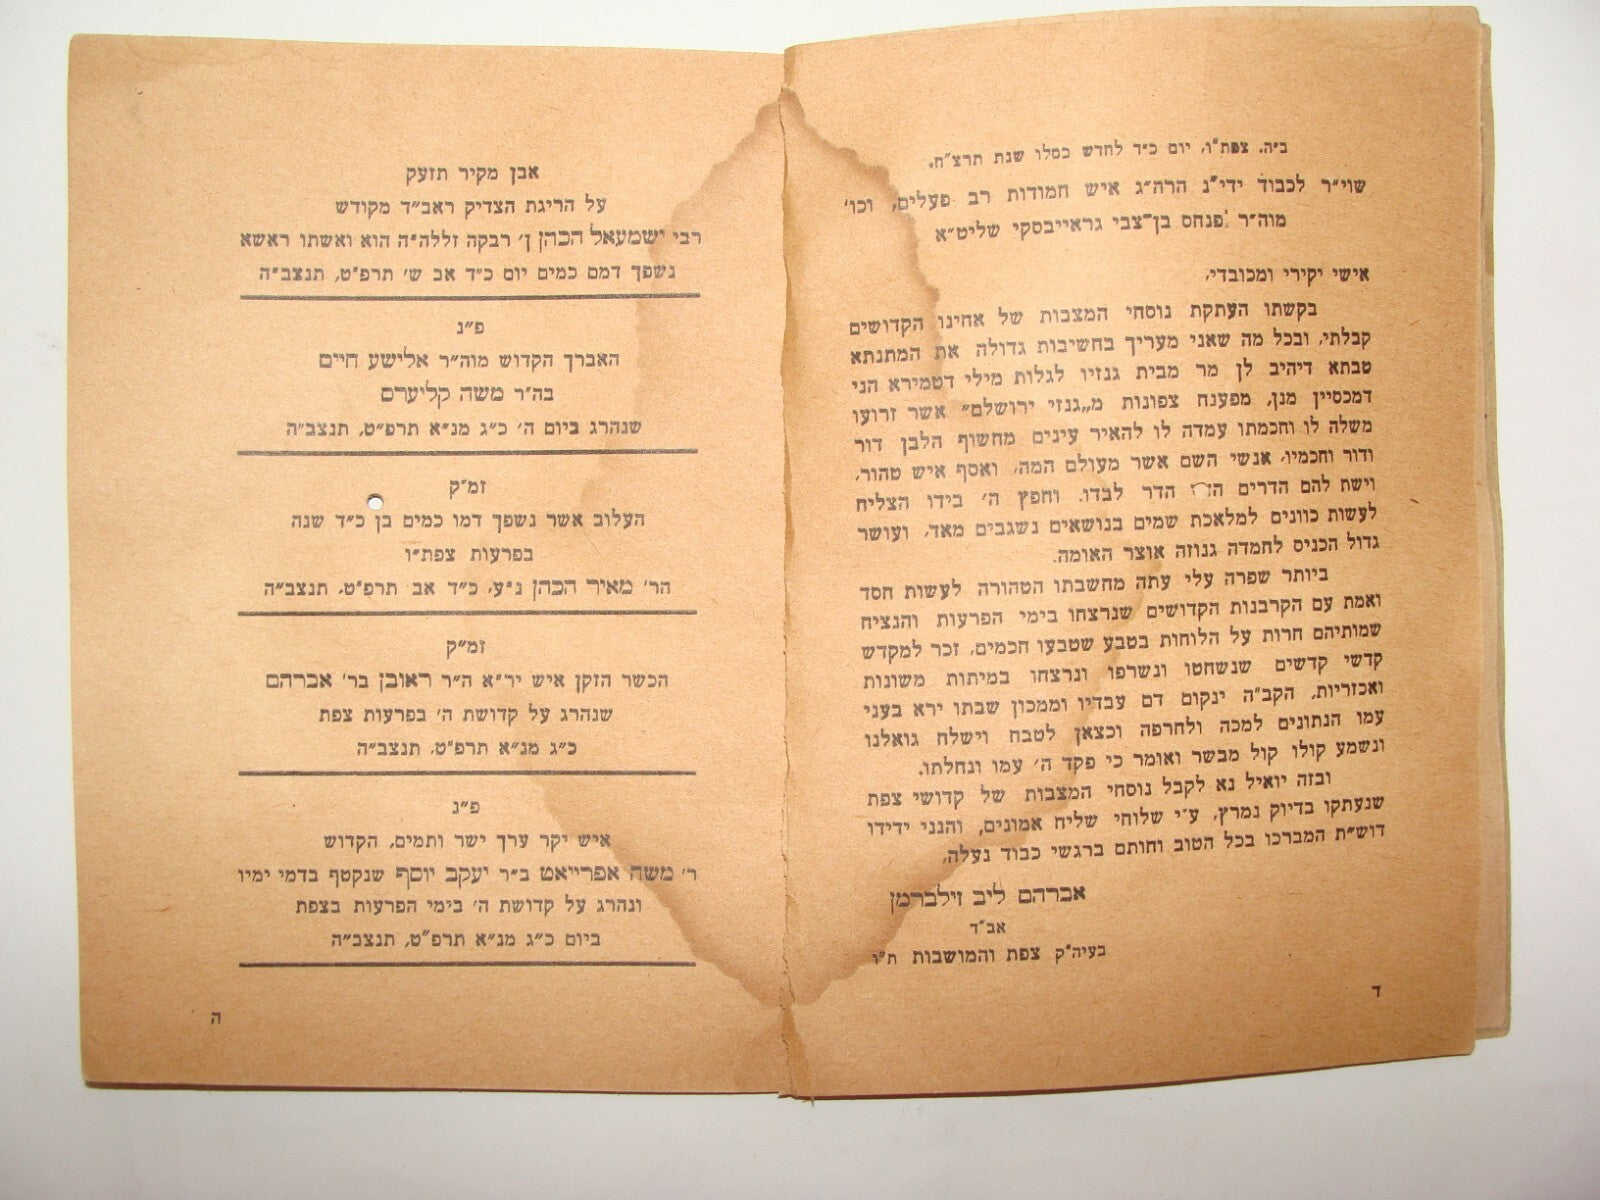 ב״ה. צפת״ו, יום כ״ד לחדש כסלו שנת תרצ״ח.
שוי״ר לכבוד ידי״נ הרה״ג איש חמודות רב פעלים, וכו'
מוה״ר פנחס בן־צבי גראייבסקי שליט״א
אישי יקירי ומכובדי,
בקשתו העתקת נוסחי המצבות של אחינו הקדושים
קבלתי, ובכל מה שאני מעריך בחשיבות גדולה את המתנתא
טבתא דיהיב לן מר מבית גנזיו לגלות מילי דטמירא הני
דמכסיין מנן, מפענח צפונות מ„גנזי ירושלם״ אשר זרועו
משלה לו וחכמתו עמדה לו להאיר עינים מחשוף הלבן דור
ודור וחכמיו, אנשי השם אשר מעולם המה, ואסף איש טהור,
וישת להם הדרים הדר לבדו. וחפץ ה' בידו הצליח
לעשות כוונים למלאכת שמים בנושאים נשגבים מאד, ועושר
גדול הכניס לחמדה גנוזה אוצר האומה.
ביותר שפרה עלי עתה מחשבתו הטהורה לעשות חסד
ואמת עם הקרבנות הקדושים שנרצחו בימי הפרעות והנציח
שמותיהם חרות על הלוחות בטבע שטבעו חכמים, זכר למקדש
קדשי קדשים שנשחטו ונשרפו ונרצחו במיתות משונות
ואכזריות, הקב״ה ינקום דם עבדיו וממכון שבתו ירא בעני
עמו הנתונים למכה ולחרפה וכצאן לטבח וישלח גואלנו
ונשמע קולו קול מבשר ואומר כי פקד ה' עמו ונחלתו.
ובזה יואיל נא לקבל נוסחי המצבות של קדושי צפת
שנעתקו בדיוק נמרץ, ע״י שלוחי שליח אמונים, והנני ידידו
דוש״ת המברכו בכל הטוב וחותם ברגשי כבוד נעלה,
אברהם ליב זילברמן
אב״ד
בעיה״ק צפת והמושבות ת״ו
ד
אבן מקיר תזעק
על הריגת הצדיק ראב״ד מקודש
רבי ישמעאל הכהן ן' רבקה זללה״ה הוא ואשתו ראשא
נשפך דמם כמים יום כ״ד אב ש' תרפ״ט, תנצב״ה
פ״נ
האברך הקדוש מוה״ר אלישע חיים
בה״ר משה קליערס
שנהרג ביום ה' כ״ג מנ״א תרפ״ט, תנצב״ה
זמ״ק
העלוב אשר נשפך דמו כמים בן כ״ד שנה
בפרעות צפת״ו
הר' מאיר הכהן נ״ע, כ״ד אב תרפ״ט, תנצב״ה
זמ״ק
הכשר הזקן איש יר״א ה״ר ראובן בר' אברהם
שנהרג על קדושת ה' בפרעות צפת
כ״ג מנ״א תרפ״ט, תנצב״ה
פ״נ
איש יקר ערך ישר ותמים, הקדוש
ר' משה אפרייאט ב״ר יעקב יוסף שנקטף בדמי ימיו
ונהרג על קדושת ה' בימי הפרעות בצפת
ביום כ״ג מנ״א תרפ״ט, תנצב״ה
ה